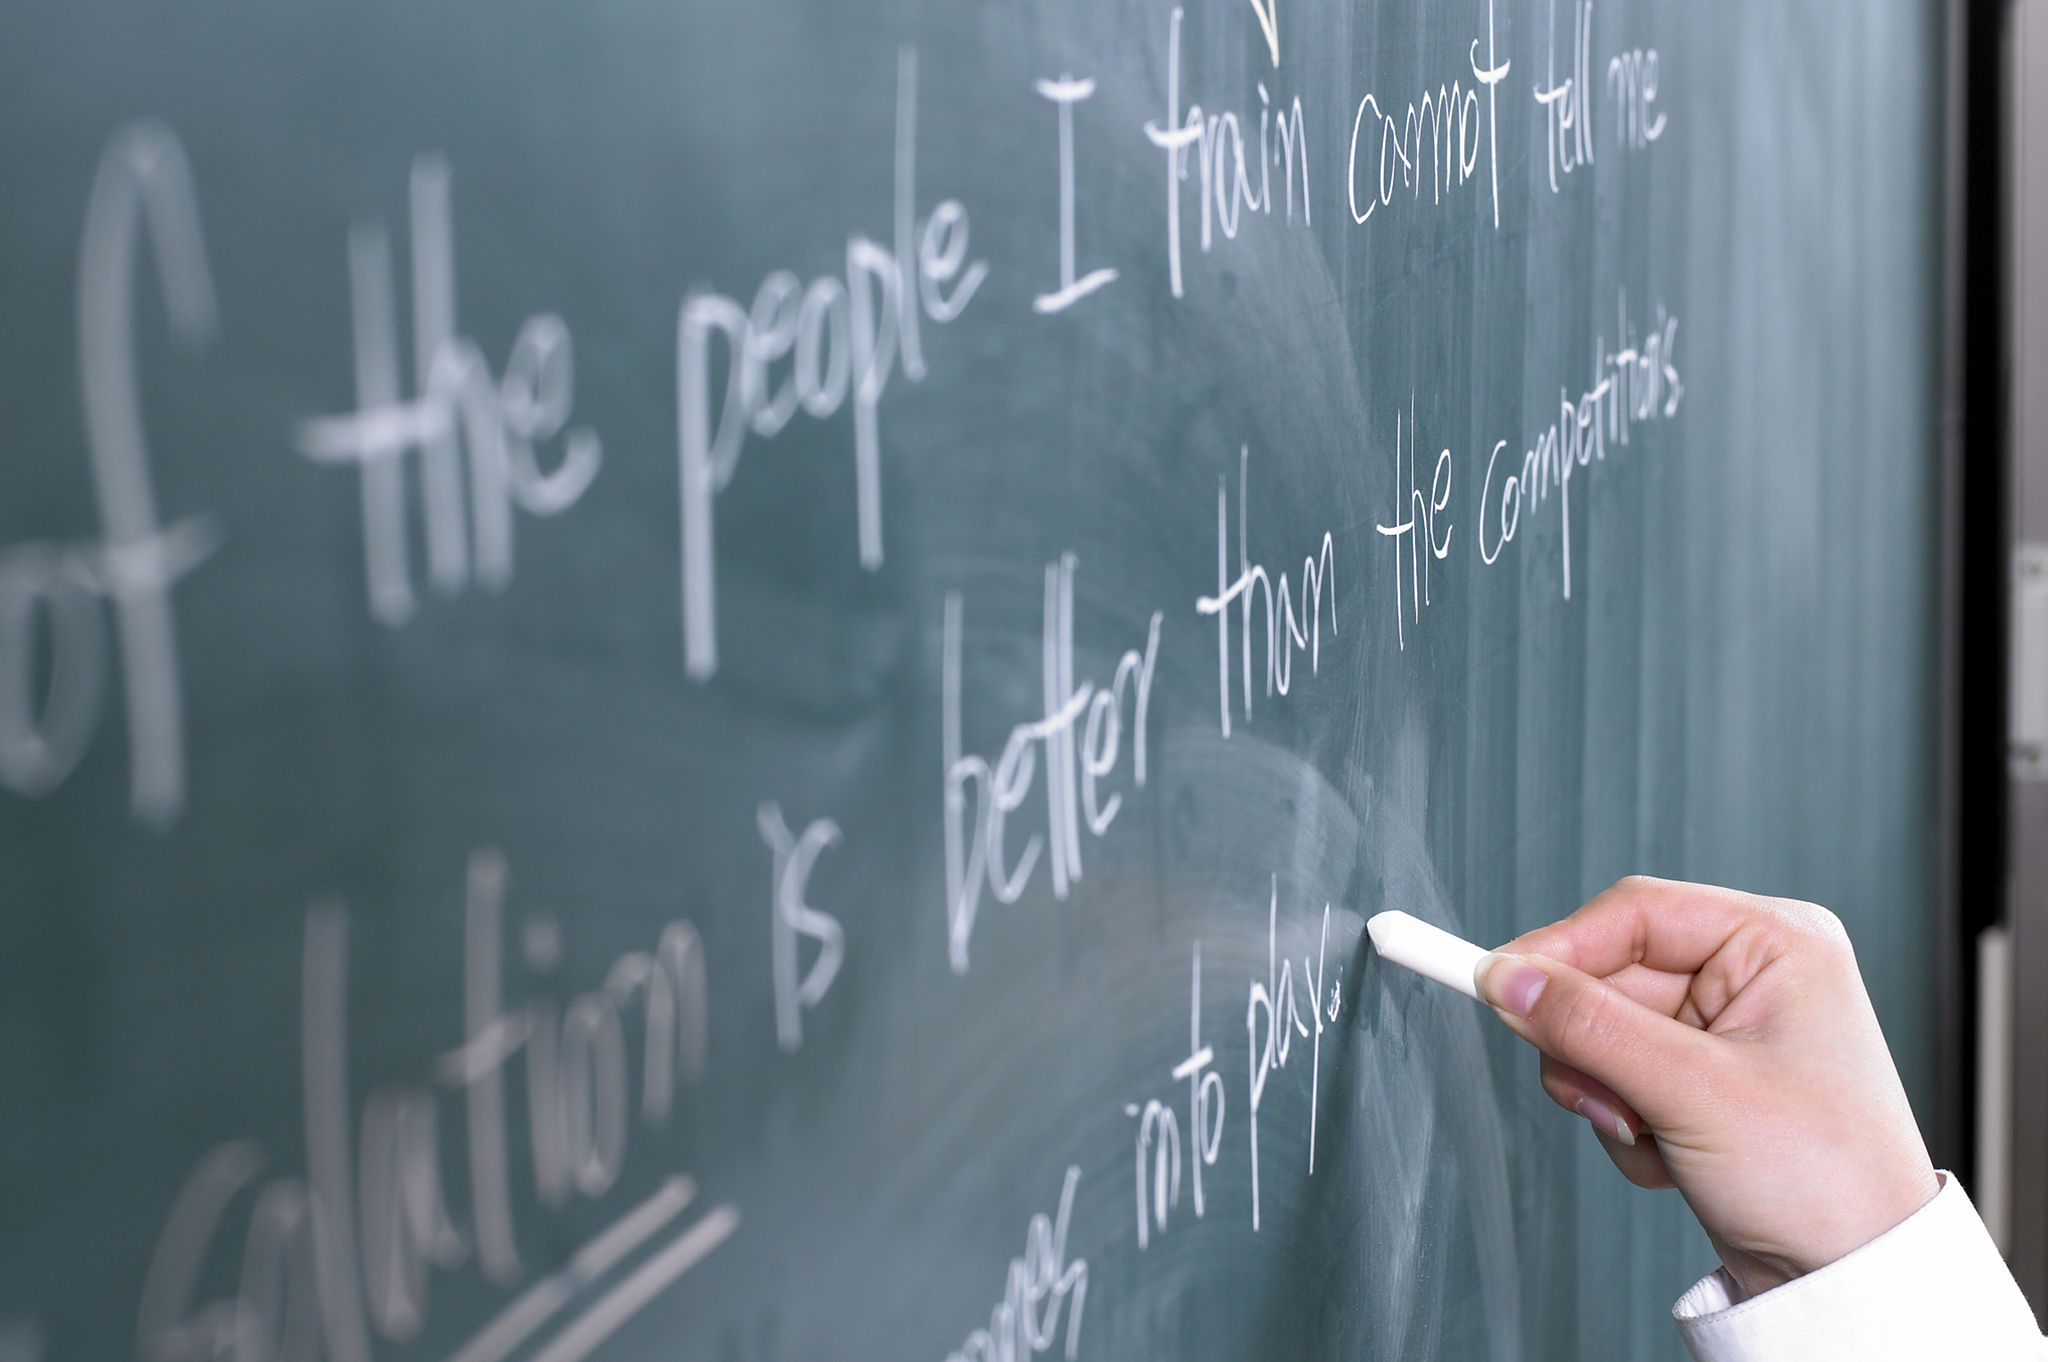 of the people I train cannot tell me
solution is better than the competition's
into play.